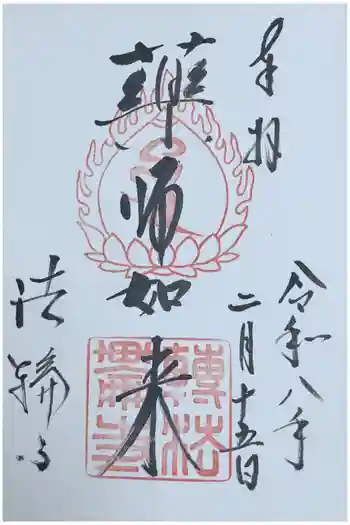 奉拝
令和八年
二月十五日
薬師如来
法輪寺
轉法輪寺